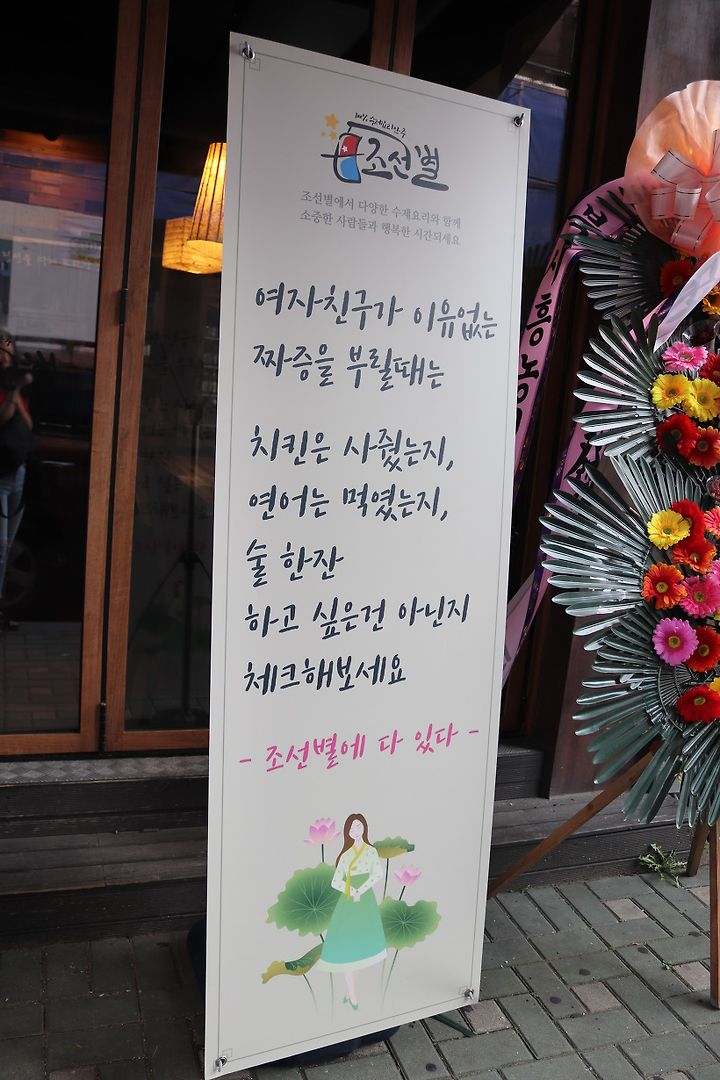 100% 수제요리안주
조선별
조선별에서 다양한 수제요리와 함께
소중한 사람들과 행복한 시간되세요
여자친구가 이유없는
짜증을 부릴때는
치킨은 사줬는지,
연어는 먹였는지,
술 한잔
하고 싶은건 아닌지
체크해보세요
- 조선별에 다 있다 -